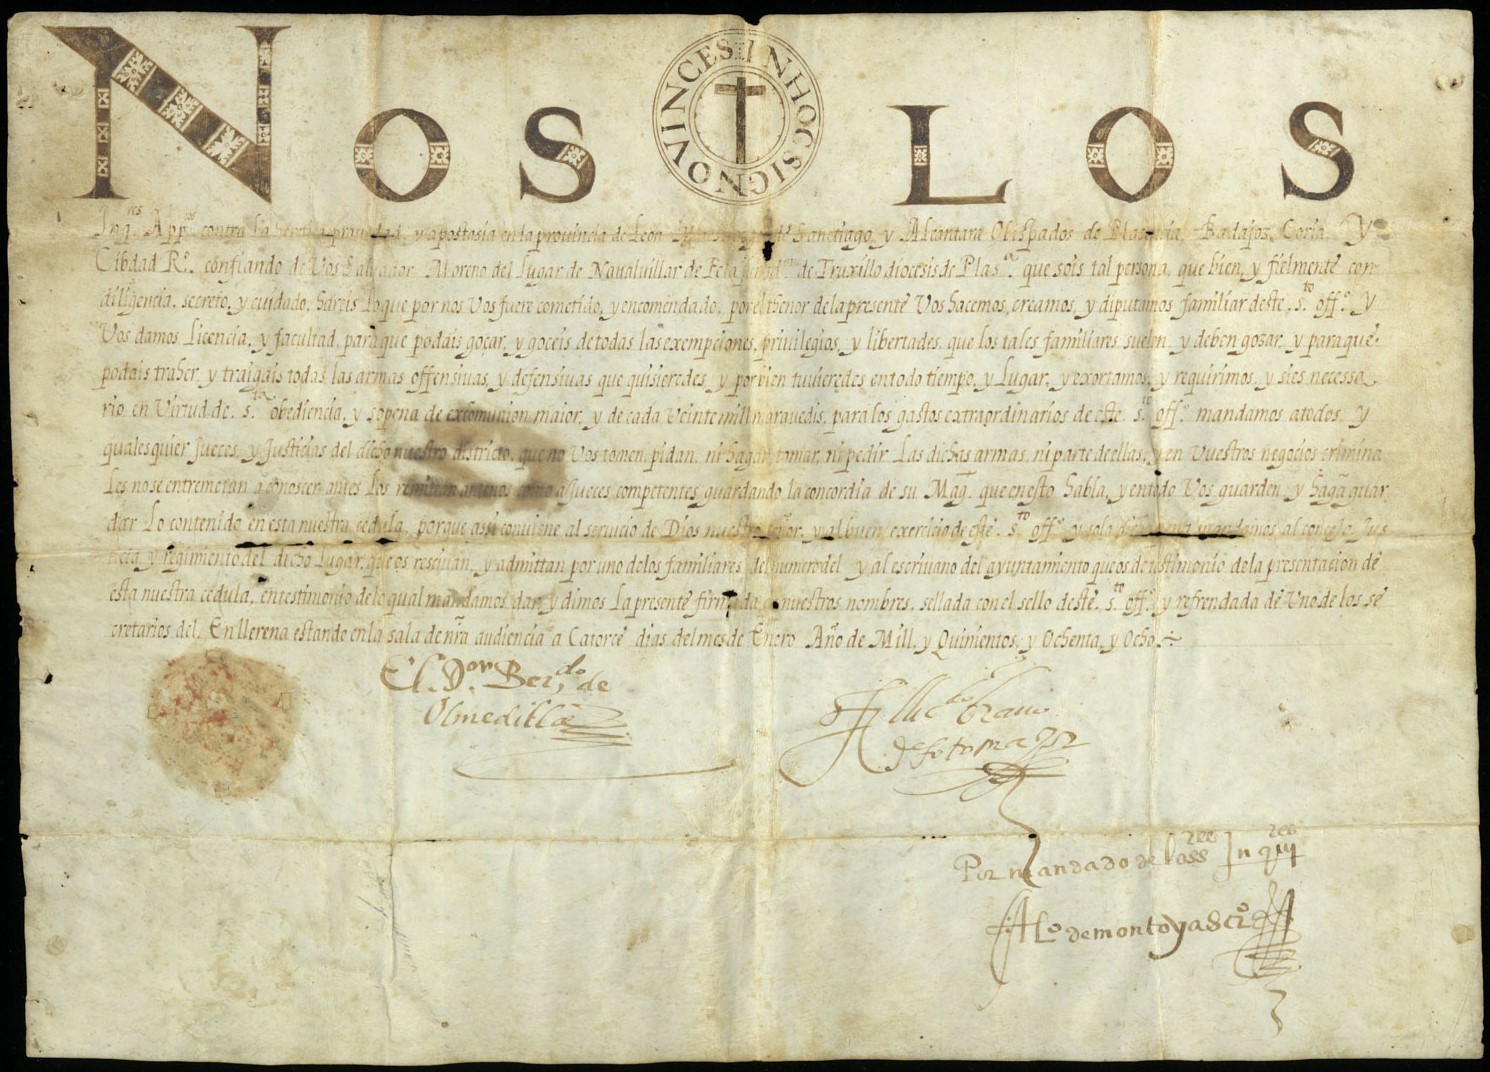 NOS LOS
IN HOC SIGNO VINCES
Inq.res App.cos contra la heretica pravedad, y apostasia en la provincia de Leon de Sanctiago, y Alcantara Obispados de Plasençia, Badajoz, Coria, Y
Cibdad R.o confiando de Vos Salvador Moreno del Lugar de Navalvillar de Pela de Truxillo diocesis de Plas.a que sois tal persona, que bien, y fielmente con
diligencia, secreto, y cuidado, hareis lo que por nos Vos fuere cometido, y encomendado, por el thenor de la presente Vos hacemos, creamos, y diputamos familiar deste s.to off.o Y
Vos damos Licencia, y facultad, para que podais goçar, y goceis de todas las exempciones, privilegios, y libertades, que los tales familiares suelen, y deben gozar, y para que
podais traher, y traigais todas las armas offensivas, y defensivas que quisieredes, y por bien tuvieredes en todo tiempo, y Lugar, y exortamos, y requirimos, y si es necessa
rio, en Virtud de s.ta obediencia, y so pena de excomunion maior, y de cada Veinte mill maravedis, para los gastos extraordinarios de este s.to off.o mandamos a todos, y
qualesquier Jueces, y Justicias del dicho nuestro districto, que no Vos tomen, pidan, ni hagan tomar, ni pedir Las dichas armas, ni parte de ellas, y en Vuestros negocios crimina
les no se entremetan a conoscer, antes los remitan a nos como a Jueces competentes, guardando la concordia de su Mag. que en esto habla, y en todo Vos guarden, y hagã guar
dar Lo contenido en esta nuestra cedula, porque assi conviene al servicio de Dios nuestro señor, y al buen exercicio deste s.to off.o y so la dicha pena mandamos al concejo, Jus
ticia, y regimiento del dicho Lugar, que os resciban, y admittan por uno de los familiares del numero del y al escrivano del ayuntamiento que os de testimonio de la presentacion de
esta nuestra cedula, en testimonio de lo qual mandamos dar, y dimos La presente firmada de nuestros nombres, sellada con el sello deste s.to off.o y refrendada de Uno de los se
cretarios del. En llerena estando en la sala de nrã audiencia a Catorce dias del mes de Enero Año de Mill, y Quinientos, y Ochenta, y Ocho
El D.or Ber.do de
Olmedilla
El lic.do bravo
de sotomayor
Por mandado de los ss.res Inqui.res
Al.o de montoya s.cr.o